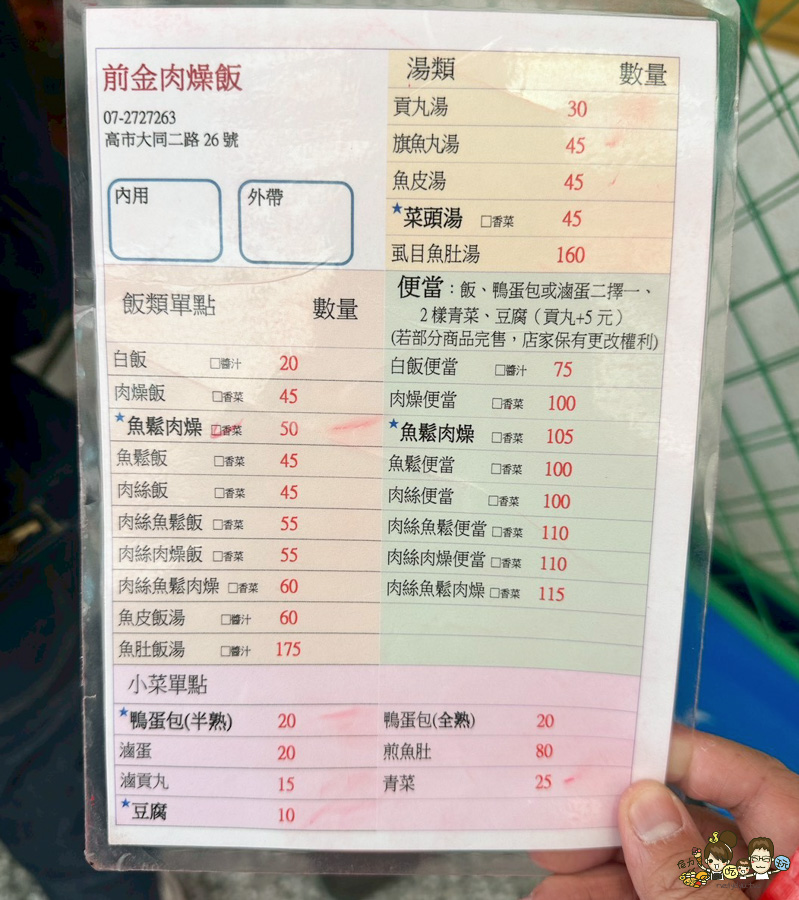 前金肉燥飯
07-2727263
高市大同二路 26 號
內用
外帶
湯類 數量
貢丸湯 30
旗魚丸湯 45
魚皮湯 45
★菜頭湯 □香菜 45
虱目魚肚湯 160
飯類單點 數量
白飯 □醬汁 20
肉燥飯 □香菜 45
★魚鬆肉燥 □香菜 50
魚鬆飯 □香菜 45
肉絲飯 □香菜 45
肉絲魚鬆飯 □香菜 55
肉絲肉燥飯 □香菜 55
肉絲魚鬆肉燥 □香菜 60
魚皮飯湯 □醬汁 60
魚肚飯湯 □醬汁 175
便當：飯、鴨蛋包或滷蛋二擇一、
2 樣青菜、豆腐（貢丸+5 元）
(若部分商品完售，店家保有更改權利)
白飯便當 □醬汁 75
肉燥便當 □香菜 100
★魚鬆肉燥 □香菜 105
魚鬆便當 □香菜 100
肉絲便當 □香菜 100
肉絲魚鬆便當 □香菜 110
肉絲肉燥便當 □香菜 110
肉絲魚鬆肉燥 □香菜 115
小菜單點
★鴨蛋包(半熟) 20
滷蛋 20
滷貢丸 15
★豆腐 10
鴨蛋包(全熟) 20
煎魚肚 80
青菜 25